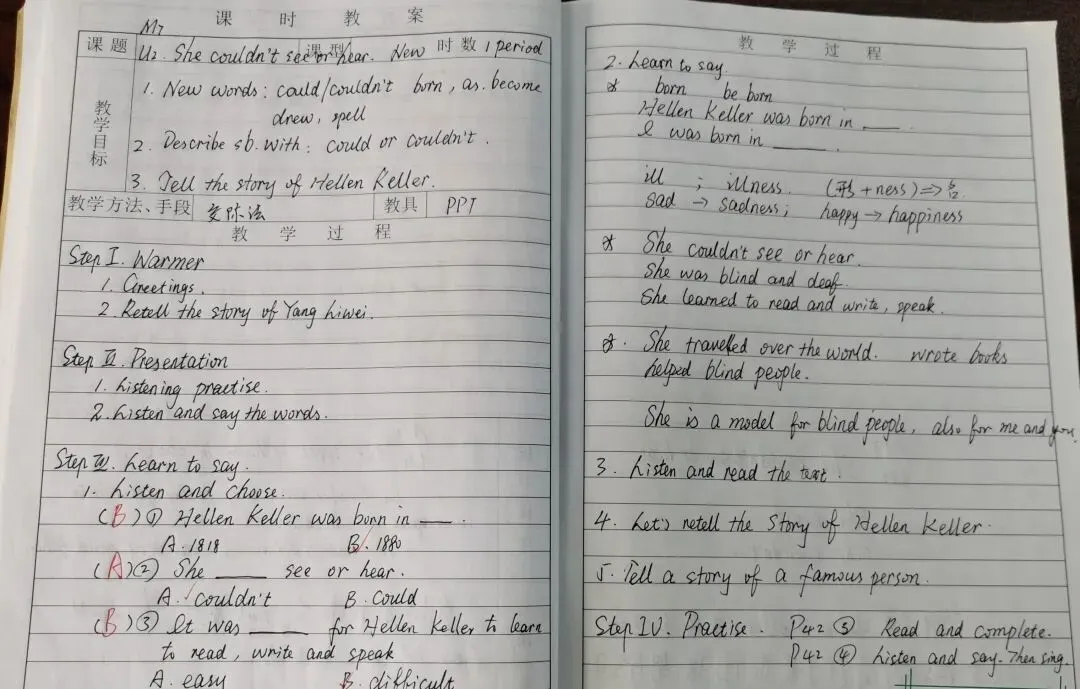 课 时 教 案
M7
课题 U2. She couldn't see or hear. 课型 New 时数 1 period
教学目标
1. New words: could/couldn't born, as. become
drew, spell
2. Describe sb. with: could or couldn't.
3. Tell the story of Hellen Keller.
教学方法、手段 交际法 教具 PPT
教 学 过 程
Step I. Warmer
1. Greetings.
2. Retell the story of Yang Liwei.
Step II. Presentation
1. Listening practise.
2. Listen and say the words.
Step III. Learn to say.
1. Listen and choose.
(B) ① Hellen Keller was born in ___.
A. 1818 B. 1880
(A) ② She ____ see or hear.
A. couldn't B. Could
(B) ③ It was ____ for Hellen Keller to learn
to read, write and speak
A. easy B. difficult
教 学 过 程
2. Learn to say.
* born be born
Hellen Keller was born in ___.
I was born in ____.
ill ; illness. (形+ness)⇒名.
sad → sadness; happy → happiness
* She couldn't see or hear.
She was blind and deaf.
She learned to read and write, speak.
*. She travelled over the world. wrote books
helped blind people.
She is a model for blind people, also for me and you.
3. Listen and read the text.
4. Let's retell the story of Hellen Keller.
5. Tell a story of a famous person.
Step IV. Practise. P42 ③ Read and complete.
P42 ④ Listen and say. Then sing.